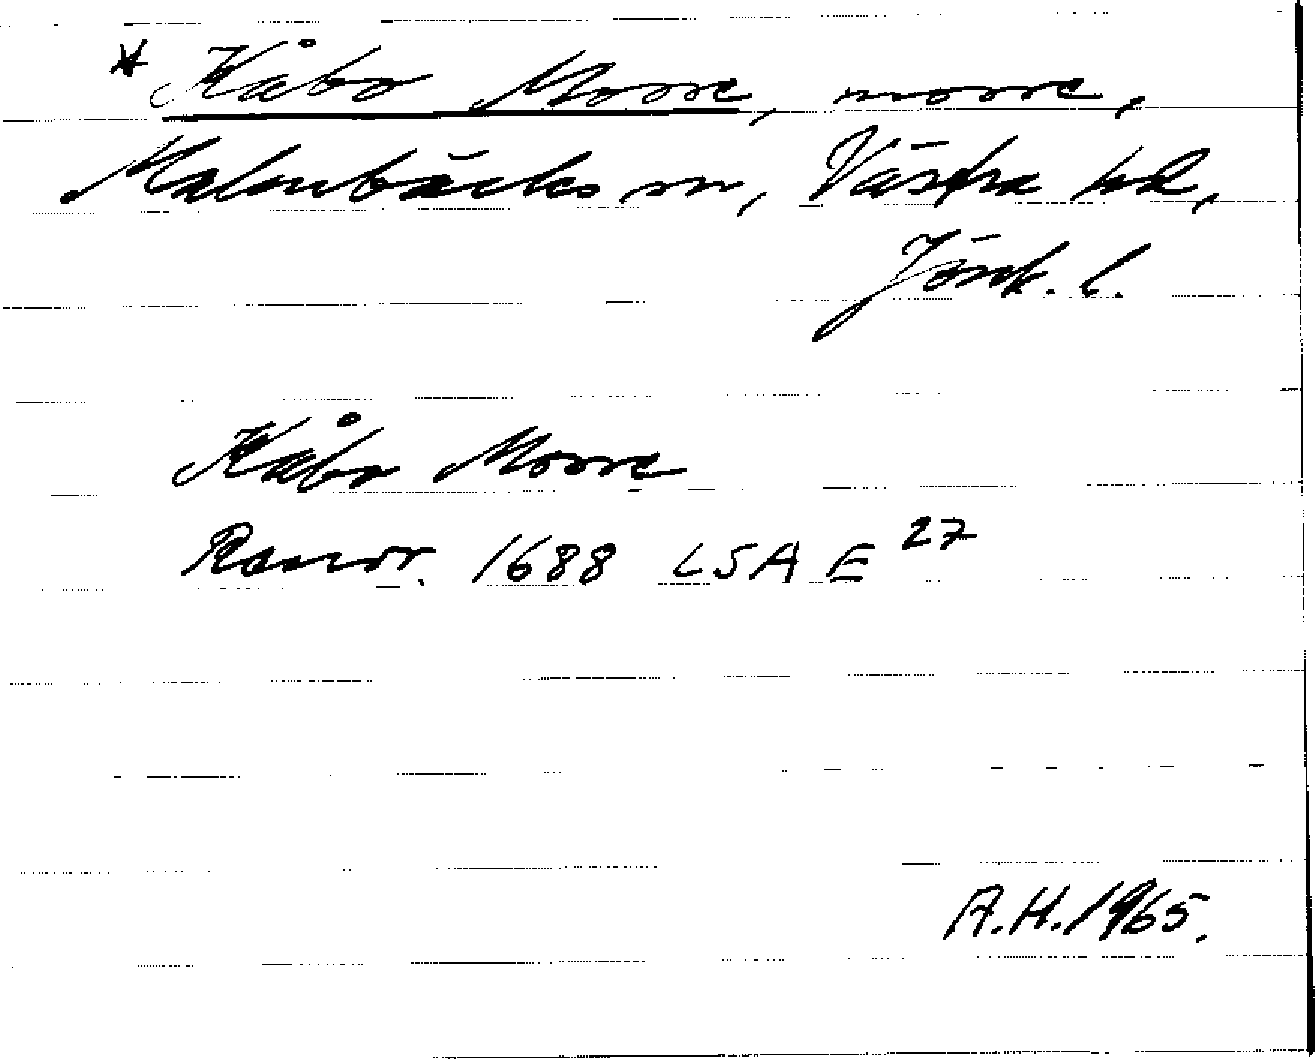 * Kåbo Mosse, mosse,
Malmbäcks sn, Västra hd,
Jönk. l.
Kåbo Mosse
Ransr. 1688 LSA E 27
A.H. 1965.